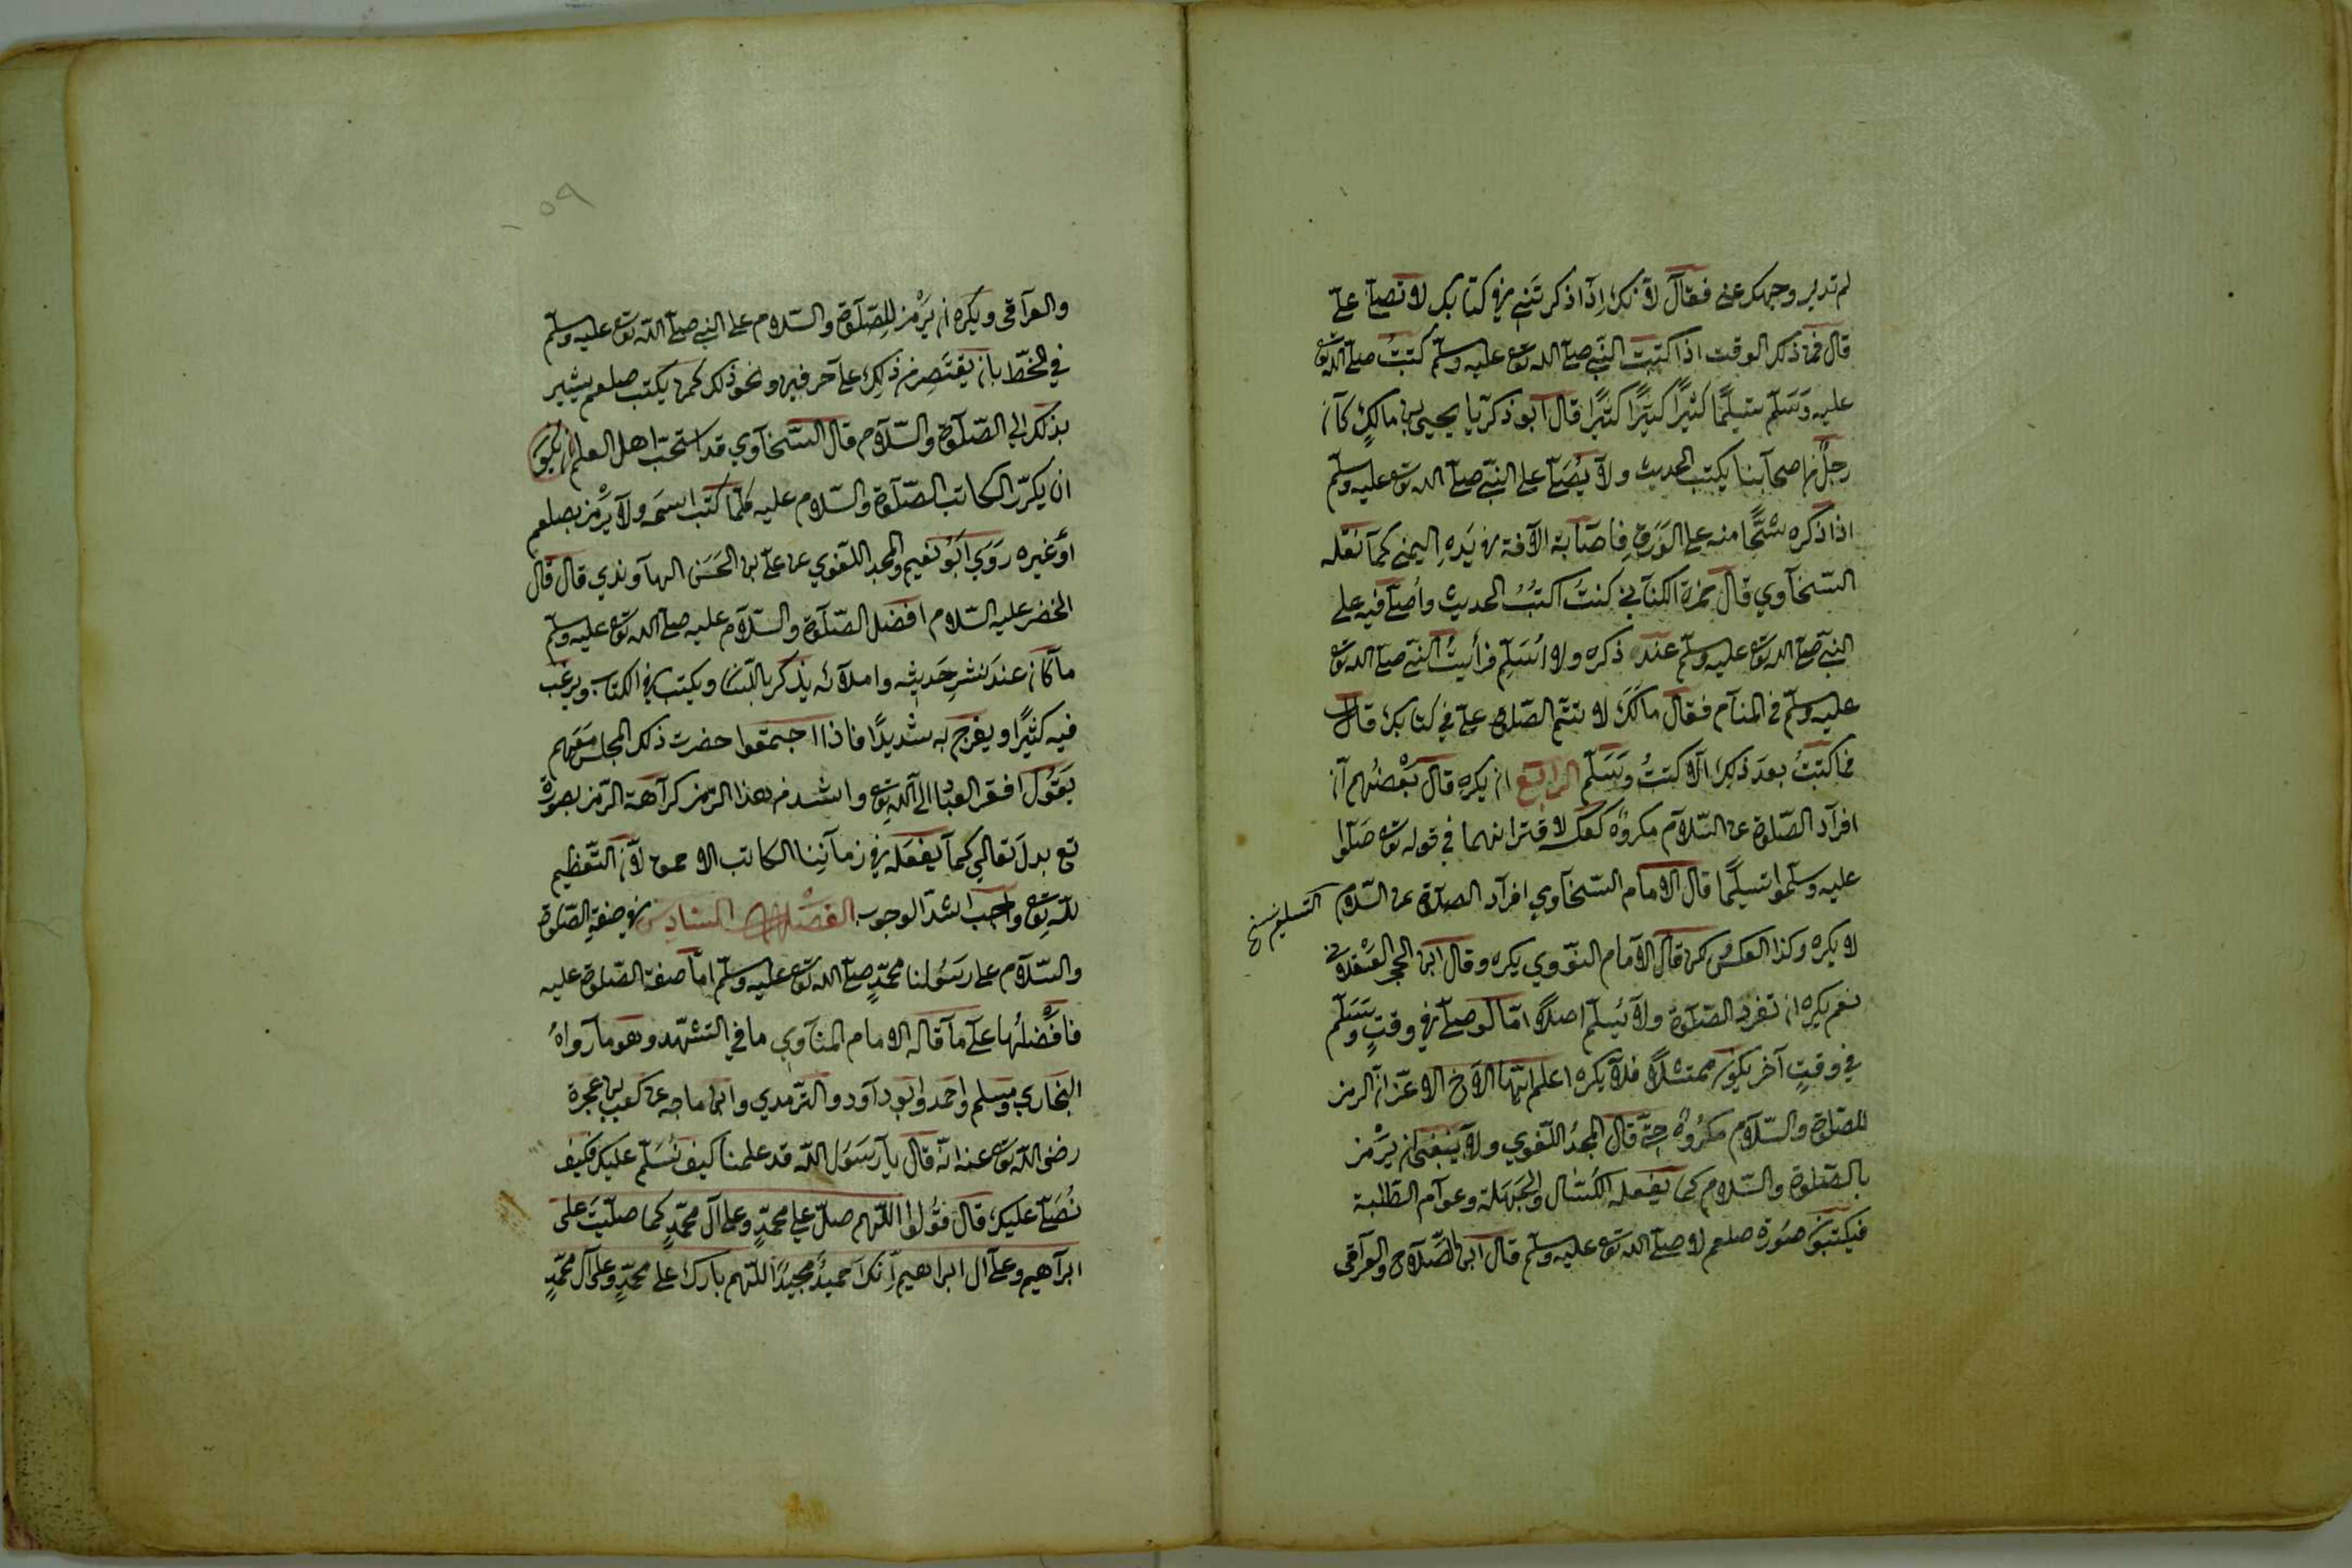 لم تدير وجهك عني فقال لانك اذا ذكرتني في كتابك لا تصلي علي
قال فمن ذلك الوقت اذا كتبت النبي صلى الله تع عليه وسلم كتبت صلى الله تع
عليه وسلم تسليما كثيرا كثيرا كثيرا قال ابو ذكريا يحيى بن مالك كان
رجل من اصحابنا يكتب الحديث ولا يصلي على النبي صلى الله تع عليه وسلم
اذا ذكره شحا منه على الورق فاصابة الآفة في يده اليمنى كما نقله
السخاوي قال حمزة الكناني كنت اكتب الحديث واصلي فيه على
النبي صلى الله تع عليه وسلم عند ذكره ولا اسلم فرأيت النبي صلى الله تع
عليه وسلم في المنام فقال مالك لا تتم الصلوة علي في كتابك قال
فما كتبت بعد ذلك الا كتبت وسلم الرابع ان يكره قال بعضهم ان
افراد الصلوة عن السلام مكروه كعكسه لاقترانهما في قوله تع صلوا
عليه وسلموا تسليما قال الامام السخاوي افراد الصلاة عن السلام
التسليم نسخ
لا يكره وكذا العكس لكن قال الامام النووي يكره وقال ابن الحجر العسقلاني
نعم يكره ان تفرد الصلوة ولا يسلم اصلا اما لو صلى في وقت وسلم
في وقت آخر يكون ممتثلا فلا يكره اعلم ايها الاخ الاعز ان الرمز
للصلوة والسلام مكروه حتى قال المجد اللغوي ولا ينبغي ان يرمز
بالصلوة والسلام كما يفعله الكسال والجهلة وعوام الطلبة
فيكتبون صورة صلعم لا صلى الله تع عليه وسلم قال ابن الصلاح والعراقي
٥٩
والعراقي ويكره ان يرمز للصلوة والسلام على النبي صلى الله تع عليه وسلم
في الخط بان يقتصر من ذلك على حرفين ونحو ذلك كمن يكتب صلعم يشير
بذلك الى الصلوة والسلام قال السخاوي قد استحب اهل العلم ان يكون
ان يكرر الكاتب الصلوة والسلام عليه كلما كتب اسمه ولا يرمز بصلعم
او غيره روي ابو نعيم والمجد اللغوي عن علي بن الحسن الهاوندي قال قال
الخضر عليه السلام افضل الصلوة والسلام عليه صلى الله تع عليه وسلم
ما كان عند نشر حديثه واملائه يذكر باللسان ويكتب في الكتاب ويرغب
فيه كثيرا ويفرح به شديدا فاذا اجتمعوا حضرت ذلك المجلس معهم
يقول افقر العباد الى الله تع واشد من هذا الرمز كراهة الرمز بصورة
تع بدل تعالى كما يفعله في زماننا الكاتب الاحمق لان التعظيم
لله تع واجب اشد الوجوب الفصل السادس في صفة الصلوة
والسلام على رسولنا محمد صلى الله تع عليه وسلم اما صفة الصلوة عليه
فافضلها على ما قاله الامام المناوي ما في التشهد وهو ما رواه
البخاري ومسلم واحمد وابو داود والترمدي وابن ماجه عن كعب بن عجرة
رضى الله تع عنه انه قال يا رسول الله قد علمنا كيف نسلم عليك فكيف
نصلي عليك قال قولوا اللهم صل على محمد وعلى آل محمد كما صليت على
ابراهيم وعلى آل ابراهيم انك حميد مجيد اللهم بارك على محمد وعلى آل محمد